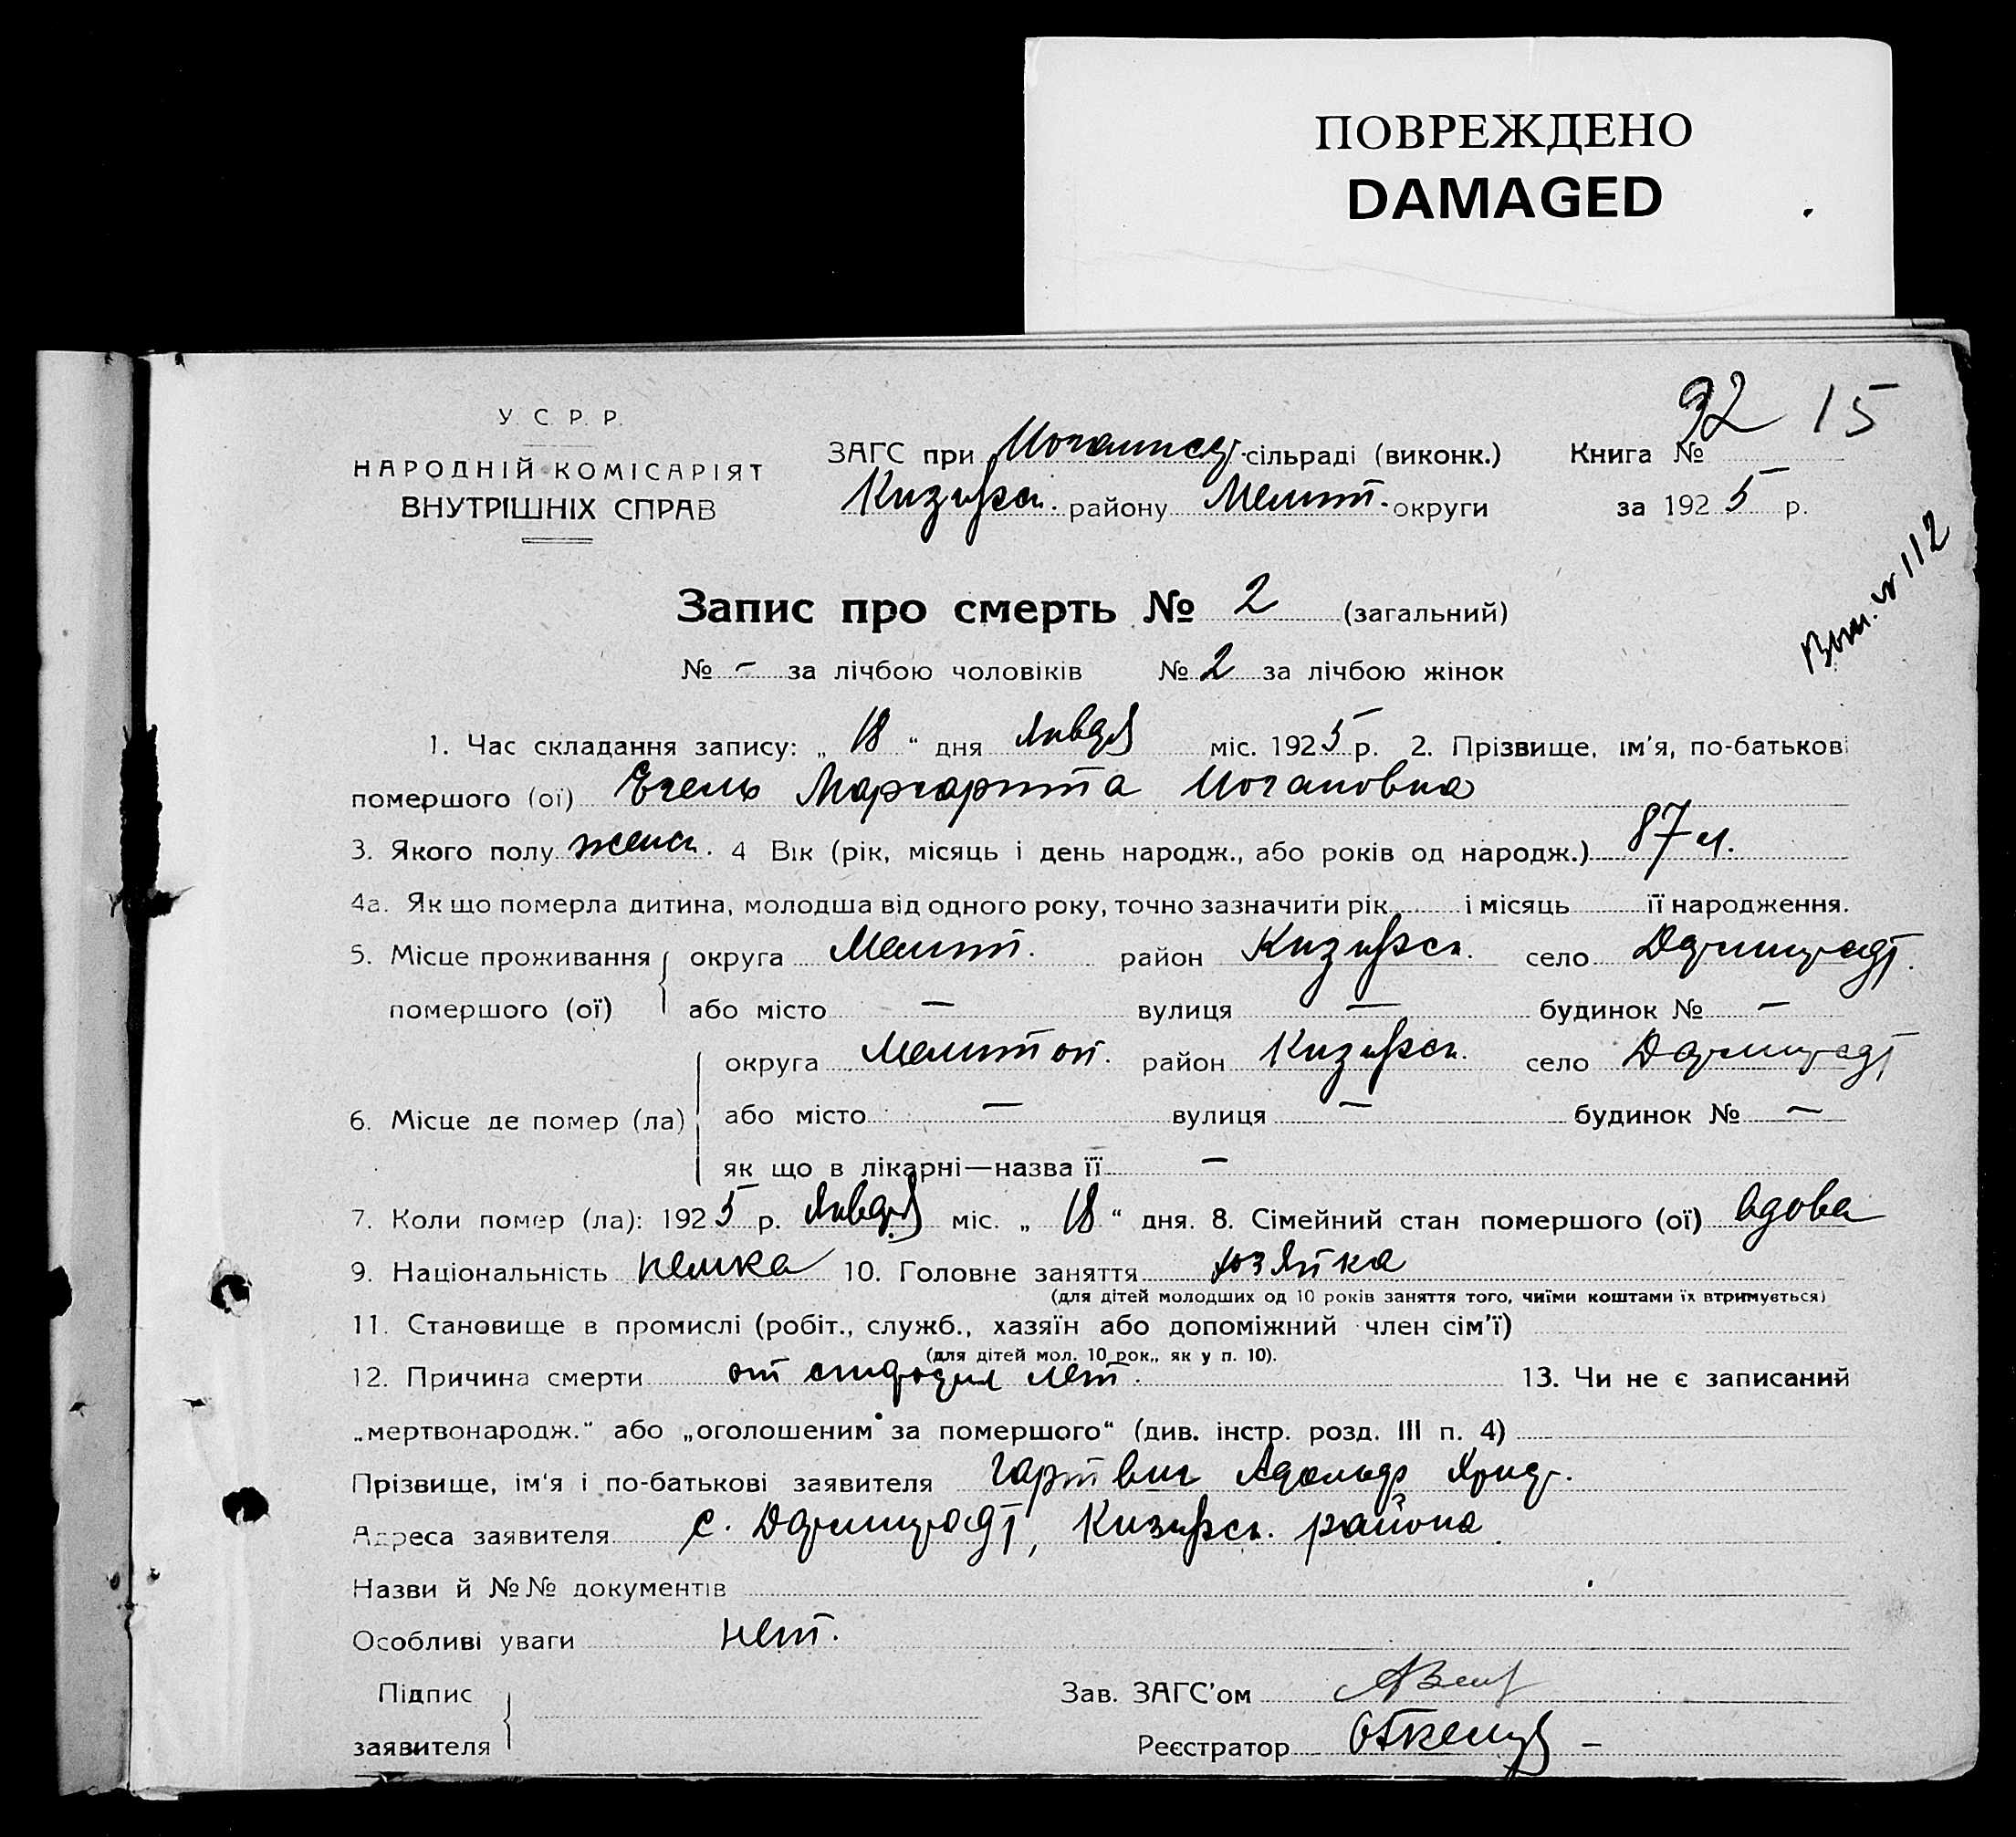 ПОВРЕЖДЕНО
DAMAGED
92 15
У. С. Р. Р.
НАРОДНІЙ КОМІСАРІЯТ
ВНУТРІШНІХ СПРАВ
ЗАГС при сільраді (виконк.) Книга №
району Мелит. округи за 1925 р.
Вып. № 112
Запис про смерть № 2 (загальний)
№ - за лічбою чоловіків № 2 за лічбою жінок
1. Час складання запису: „ 18 “ дня января міс. 1925 р. 2. Прізвище, ім'я, по-батькові
помершого (ої) Егель Маргарита Иогановна
3. Якого полу женск. 4 Вік (рік, місяць і день народж., або років од народж.) 87 л.
4а. Як що померла дитина, молодша від одного року, точно зазначити рік і місяць її народження.
5. Місце проживання округа Мелит. район село Дармштадт.
помершого (ої) або місто — вулиця — будинок № —
округа Мелитоп. район село Дармштадт
6. Місце де помер (ла) або місто — вулиця — будинок № —
як що в лікарні—назва її —
7. Коли помер (ла): 1925 р. января міс. „ 18 “ дня. 8. Сімейний стан помершого (ої) вдова
9. Національність немка 10. Головне заняття хозяйка
(для дітей молодших од 10 років заняття того, чиїми коштами їх втримується)
11. Становище в промислі (робіт., служб., хазяїн або допоміжний член сім'ї)
(для дітей мол. 10 рок., як у п. 10).
12. Причина смерти от старых лет. 13. Чи не є записаний
„мертвонародж.“ або „оголошеним за помершого“ (див. інстр. розд. III п. 4)
Прізвище, ім'я і по-батькові заявителя Гартвиг Адольф
Адреса заявителя с. Дармштадт, района.
Назви й №№ документів
Особливі уваги нет.
Підпис Зав. ЗАГС'ом
заявителя Реєстратор